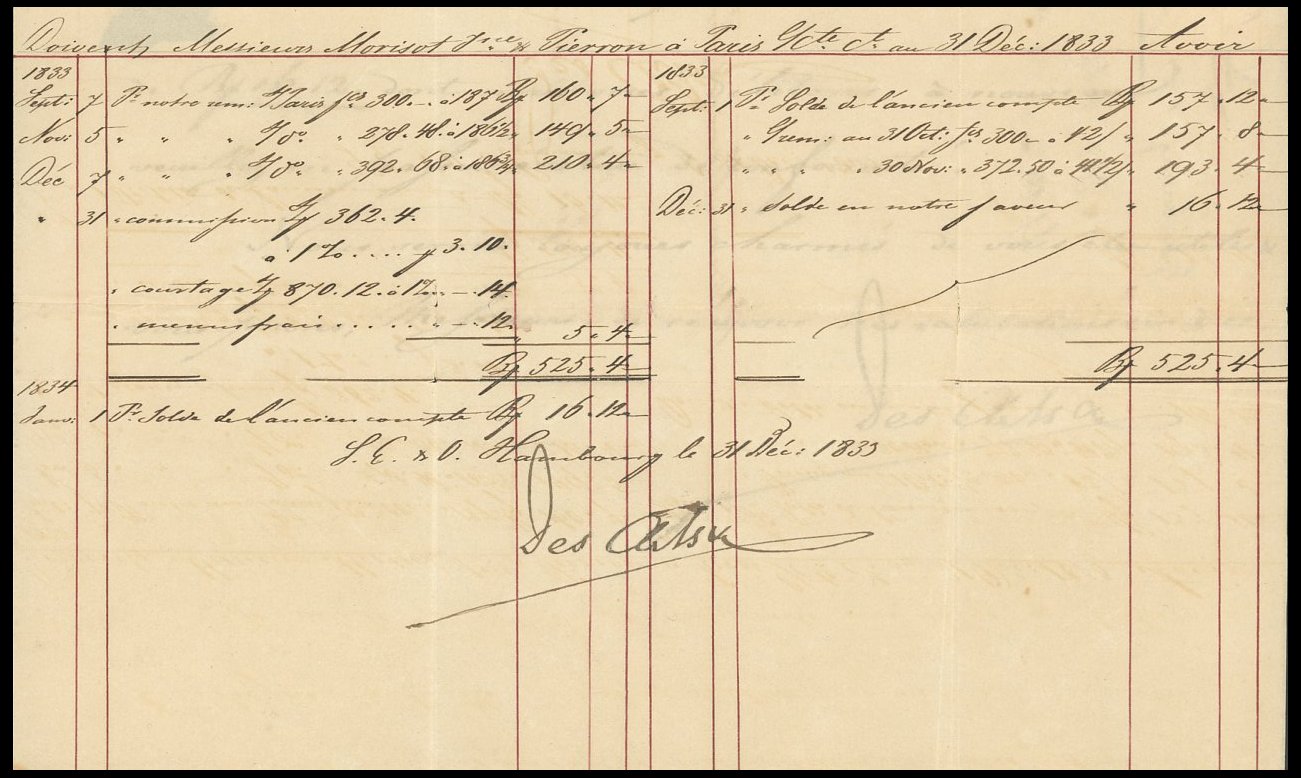 Doivent Messieurs Morisot & Pierron à Paris Cte Ct au 31 Déc: 1833 Avoir
1833
Sept: 7 Pr notre rem: s/Paris fcs 300.— à 187 B# 160 " 7 "
Nov: 5 " " " s/do " 278. 48. à 186½ " 149 " 5 "
Déc 7 " " " s/do " 392. 68. à 186¾ " 210 " 4 "
" 31 " commission s/ 362. 4.
à 1 % .... 3. 10.
" courtage s/ 870. 12. à 1 — 14.
" menus frais .... " — 12 " 5 " 4 "
B# 525 " 4 "
1834
Janv: 1 Pr Solde de l'ancien compte B# 16 " 12 "
1833
Sept: 1 Pr Solde de l'ancien compte B# 157 " 12 "
" rem: au 31 Oct: fcs 300 — à " 157 " 8 "
" " " " 30 Nov: " 372. 50 à " 193 " 4 "
Déc: 31 " Solde en notre faveur " 16 " 12 "
B# 525 " 4 "
S. E. & O. Hambourg le 31 Déc: 1833
Des Arts &